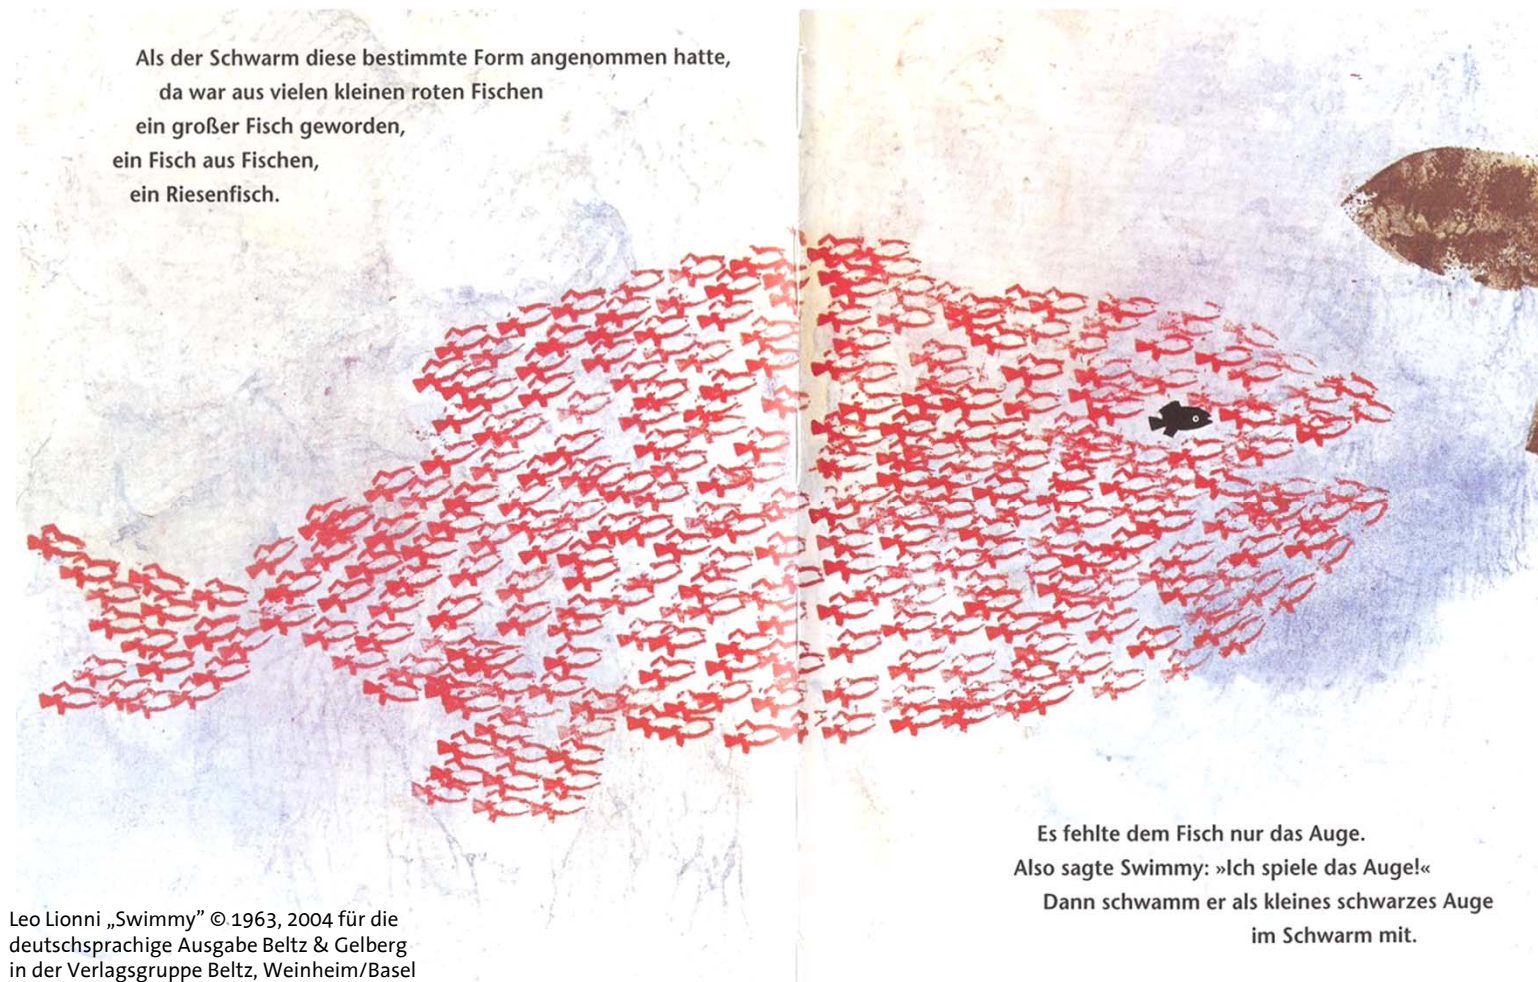 Als der Schwarm diese bestimmte Form angenommen hatte,
da war aus vielen kleinen roten Fischen
ein großer Fisch geworden,
ein Fisch aus Fischen,
ein Riesenfisch.
Es fehlte dem Fisch nur das Auge.
Also sagte Swimmy: »Ich spiele das Auge!«
Dann schwamm er als kleines schwarzes Auge
im Schwarm mit.
Leo Lionni „Swimmy” © 1963, 2004 für die
deutschsprachige Ausgabe Beltz & Gelberg
in der Verlagsgruppe Beltz, Weinheim/Basel